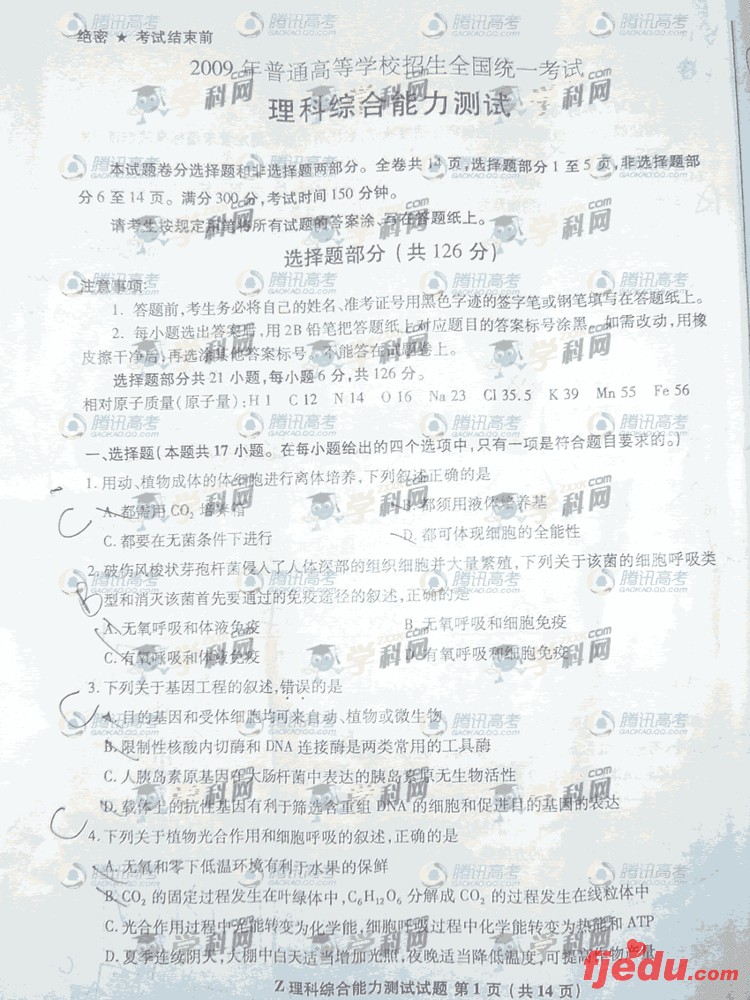 绝密 ★ 考试结束前
2009 年普通高等学校招生全国统一考试
理科综合能力测试
本试题卷分选择题和非选择题两部分。全卷共 14 页,选择题部分 1 至 5 页,非选择题部
分 6 至 14 页。满分 300 分,考试时间 150 分钟。
请考生按规定用笔将所有试题的答案涂、写在答题纸上。
选择题部分(共 126 分)
注意事项:
1. 答题前,考生务必将自己的姓名、准考证号用黑色字迹的签字笔或钢笔填写在答题纸上。
2. 每小题选出答案后,用 2B 铅笔把答题纸上对应题目的答案标号涂黑。如需改动,用橡
皮擦干净后,再选涂其他答案标号。不能答在试题卷上。
选择题部分共 21 小题,每小题 6 分,共 126 分。
相对原子质量(原子量):H 1 C 12 N 14 O 16 Na 23 Cl 35.5 K 39 Mn 55 Fe 56
一、选择题(本题共 17 小题。在每小题给出的四个选项中,只有一项是符合题目要求的。)
1. 用动、植物成体的体细胞进行离体培养,下列叙述正确的是
C
A. 都需用 CO₂ 培养箱 B. 都须用液体培养基
C. 都要在无菌条件下进行 D. 都可体现细胞的全能性
2. 破伤风梭状芽孢杆菌侵入了人体深部的组织细胞并大量繁殖,下列关于该菌的细胞呼吸类
B
型和消灭该菌首先要通过的免疫途径的叙述,正确的是
A. 无氧呼吸和体液免疫 B. 无氧呼吸和细胞免疫
C. 有氧呼吸和体液免疫 D. 有氧呼吸和细胞免疫
3. 下列关于基因工程的叙述,错误的是
C
A. 目的基因和受体细胞均可来自动、植物或微生物
B. 限制性核酸内切酶和 DNA 连接酶是两类常用的工具酶
C. 人胰岛素原基因在大肠杆菌中表达的胰岛素原无生物活性
D. 载体上的抗性基因有利于筛选含重组 DNA 的细胞和促进目的基因的表达
C
4. 下列关于植物光合作用和细胞呼吸的叙述,正确的是
A. 无氧和零下低温环境有利于水果的保鲜
B. CO₂ 的固定过程发生在叶绿体中,C₆H₁₂O₆ 分解成 CO₂ 的过程发生在线粒体中
C. 光合作用过程中光能转变为化学能,细胞呼吸过程中化学能转变为热能和 ATP
D. 夏季连续阴天,大棚中白天适当增加光照,夜晚适当降低温度,可提高作物产量
fjedu.com
Z 理科综合能力测试试题 第 1 页 (共 14 页)